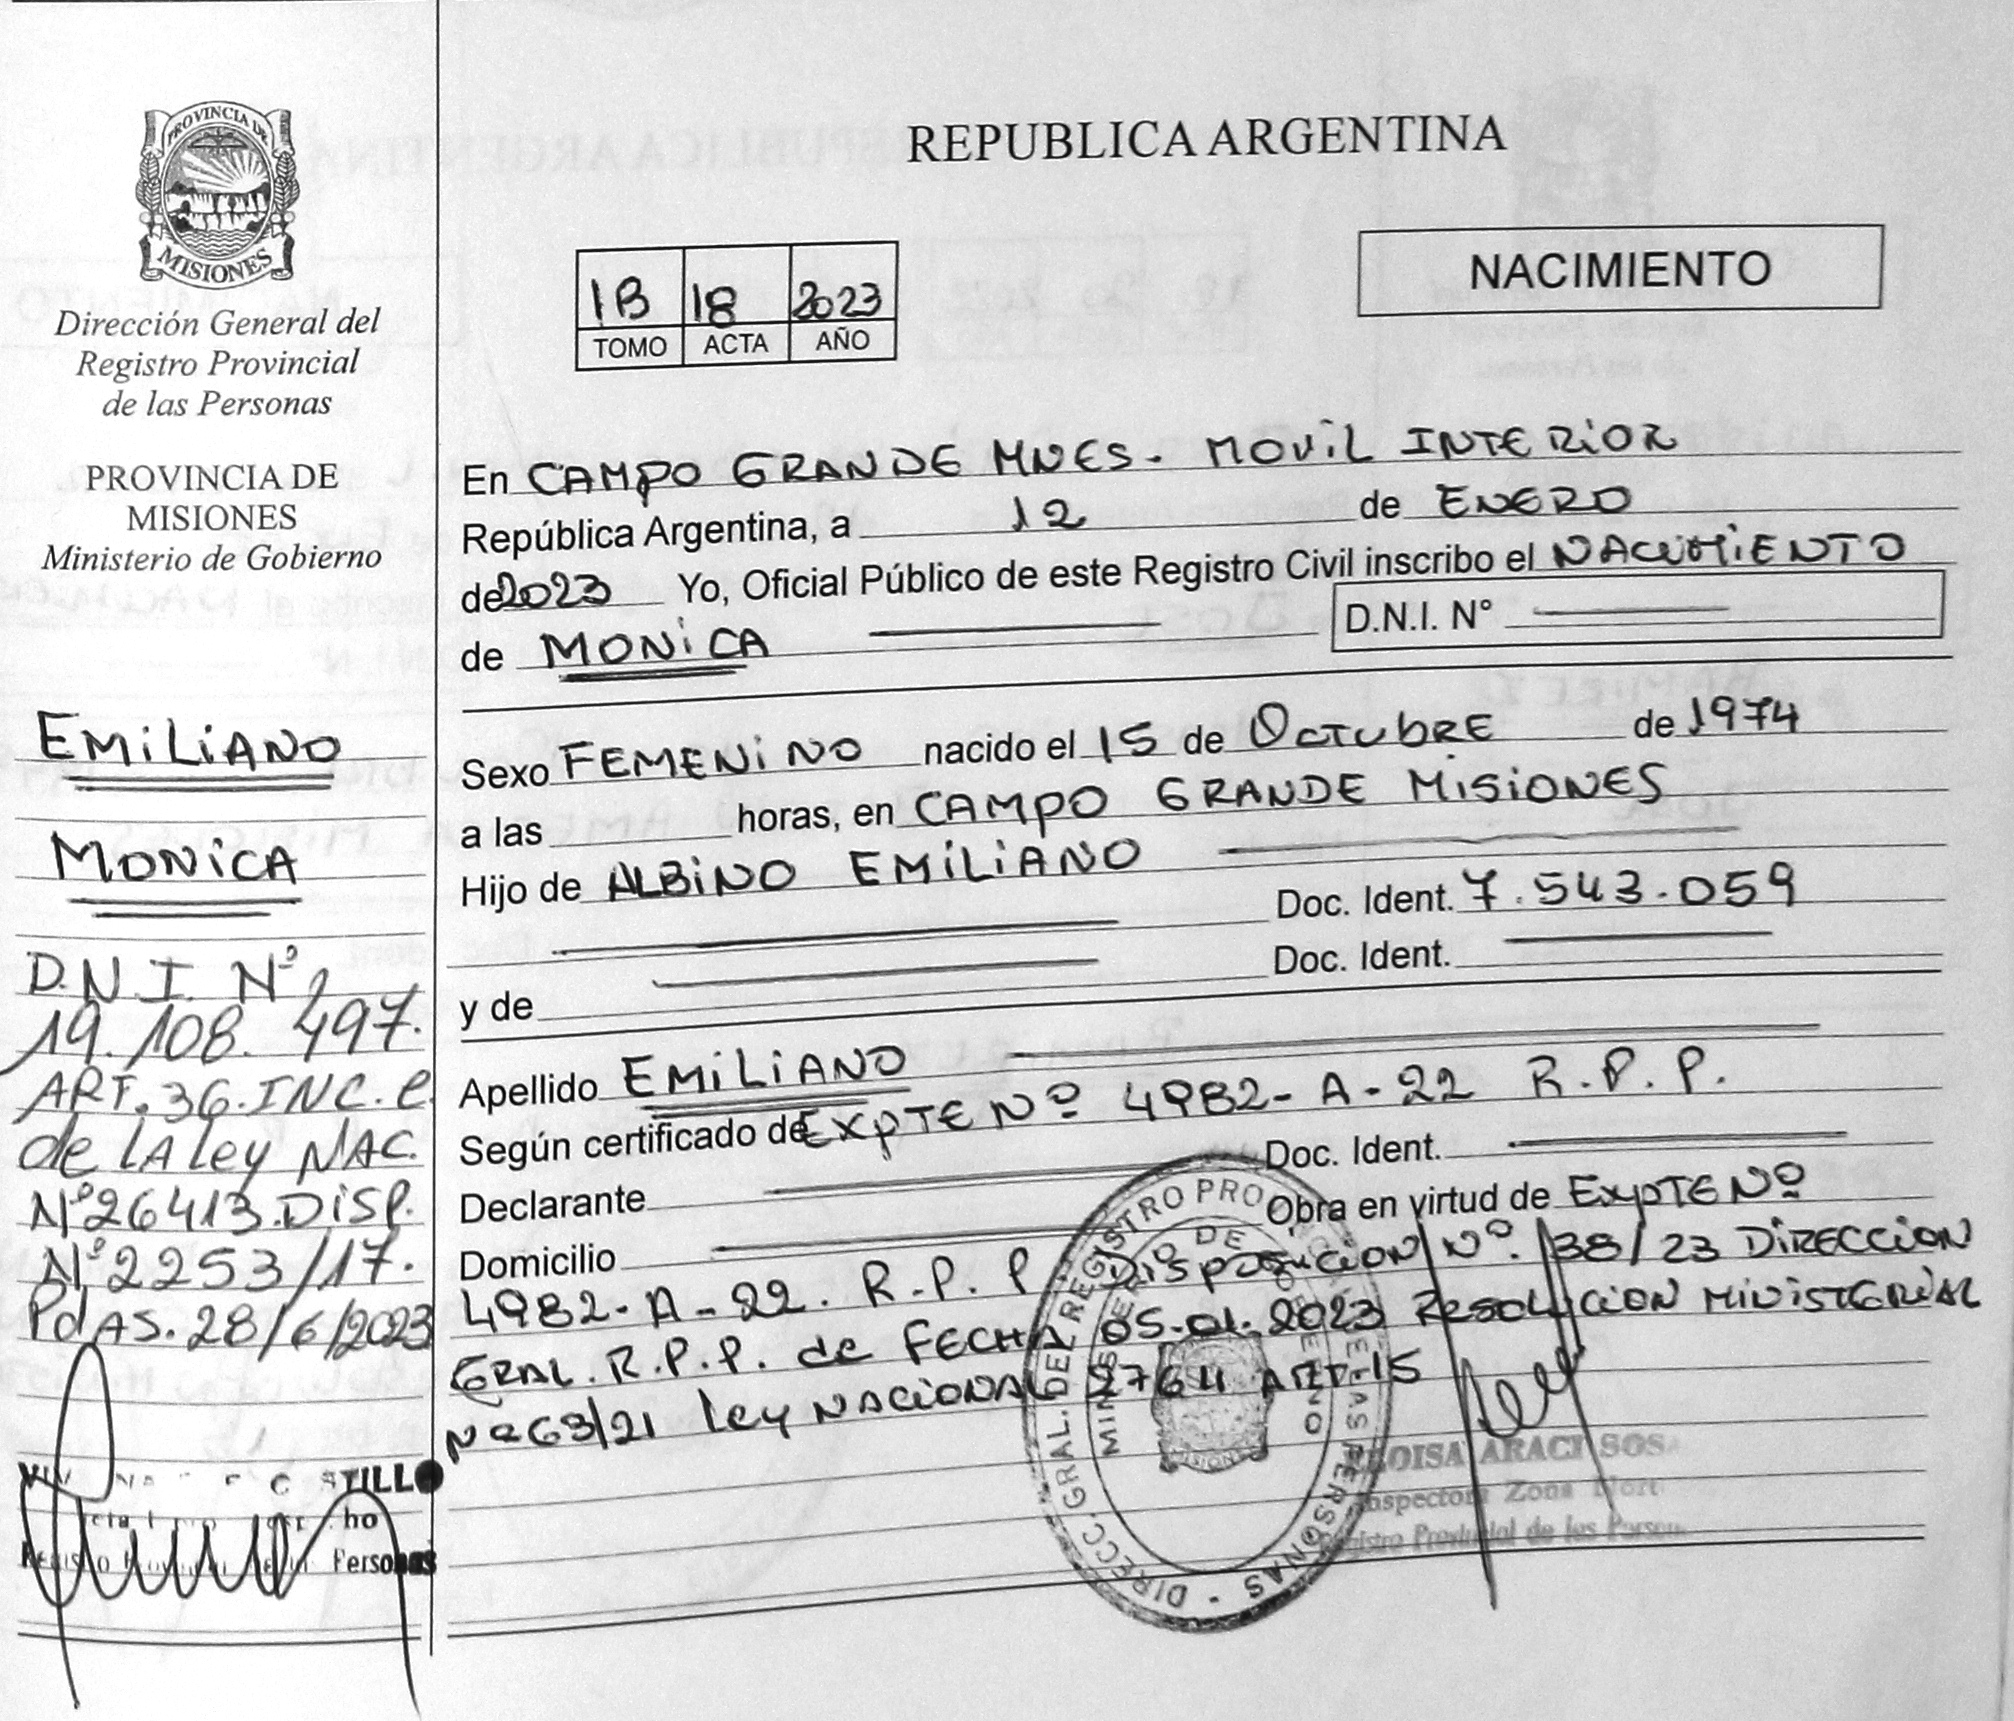 PROVINCIA DE
MISIONES
Dirección General del
Registro Provincial
de las Personas
PROVINCIA DE
MISIONES
Ministerio de Gobierno
EMILIANO
MONICA
D.N.I. Nº
19.108.497.
ART. 36. INC. C
de LA Ley NAC.
Nº26413.DISP.
Nº2253/17.
PdAS. 28/6/2023
STILLO
ho
Personas
REPUBLICA ARGENTINA
NACIMIENTO
1B 18 2023
TOMO ACTA AÑO
En CAMPO GRANDE MNES. MOVIL INTERIOR
República Argentina, a 12 de ENERO
de 2023 Yo, Oficial Público de este Registro Civil inscribo el NACIMIENTO
de MONICA D.N.I. N°
Sexo FEMENINO nacido el 15 de OCTUBRE de 1974
a las horas, en CAMPO GRANDE MISIONES
Hijo de ALBINO EMILIANO
Doc. Ident. 7.543.059
Doc. Ident.
y de
Apellido EMILIANO
Según certificado de EXPTE Nº 4982-A-22 R.P.P.
Doc. Ident.
Declarante
Obra en virtud de EXPTE Nº
Domicilio
4982-A-22. R.P.P DISPOSICION Nº. 138/23 DIRECCION
GRAL. R.P.P. de FECHA 05-01-2023 RESOLUCION MINISTERIAL
Nº 63/21 Ley NACIONAL 27611 ART-15
DIRECC. GRAL. DEL REGISTRO PROVINCIAL DE LAS PERSONAS -
MINISTERIO DE GOBIERNO
MISIONES
ELOISA ARACI SOSA
Inspectora Zona Norte
Registro Provincial de las Personas